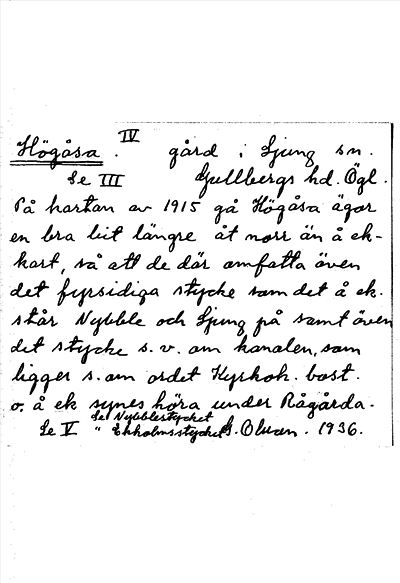 Högåsa. IV gård i Ljung sn.
Se III Gullbergs hd. Ögl.
På kartan av 1915 gå Högåsa ägor
en bra bit längre åt norr än å ek-
kart, så att de där omfatta även
det fyrsidiga stycke som det å ek.
står Nybble och Ljung på samt även
det stycke s.v. om kanalen, som
ligger s. om ordet Kyrkoh. bost.
o. å ek synes höra under Rågårda.
Se Nybblestycket
Se V " Ekholmsstycket G. Olson. 1936.